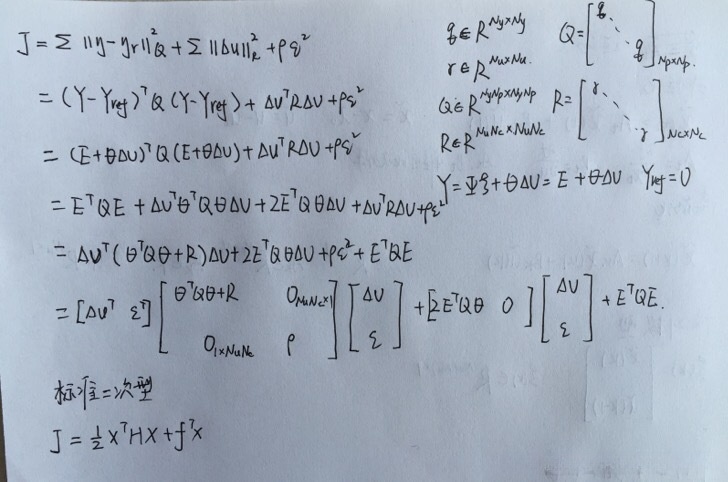 J = Σ ||y-yr||²Q + Σ ||Δu||²R + ρε²
= (Y-Yref)ᵀQ(Y-Yref) + ΔUᵀRΔU + ρε²
= (E+θΔU)ᵀQ(E+θΔU) + ΔUᵀRΔU + ρε²
= EᵀQE + ΔUᵀθᵀQθΔU + 2EᵀQθΔU + ΔUᵀRΔU + ρε²
= ΔUᵀ(θᵀQθ+R)ΔU + 2EᵀQθΔU + ρε² + EᵀQE
= [ΔUᵀ εᵀ] [θᵀQθ+R 0NuNc×1 01×NuNc ρ] [ΔU ε] + [2EᵀQθ 0] [ΔU ε] + EᵀQE.
标准二次型
J = ½xᵀHx + fᵀx
q∈R^Ny×Ny Q=[q ⋱ q]Np×Np.
r∈R^Nu×Nu.
Q∈R^NyNp×NyNp R=[r ⋱ r]Nc×Nc
R∈R^NuNc×NuNc
Y = Ψξ + θΔU = E + θΔU Yref=0